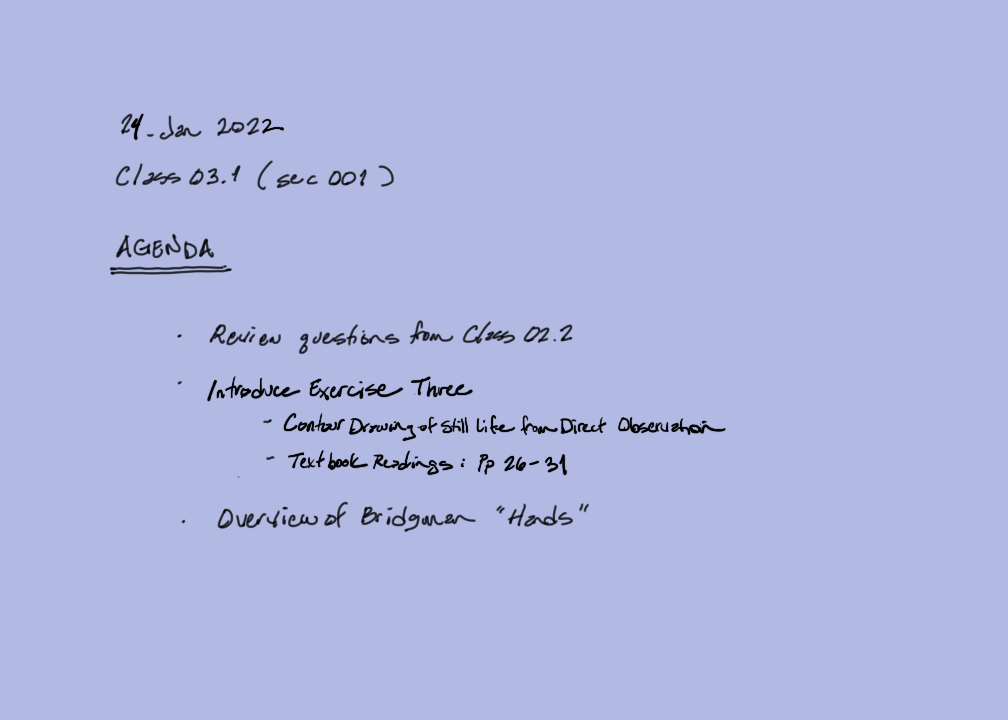 24-Jan 2022
Class 03.1 (sec 001)
AGENDA
· Review questions from Class 02.2
· Introduce Exercise Three
- Contour Drawing of Still Life from Direct Observation
- Textbook Readings: Pp 26-31
· Overview of Bridgman "Hands"